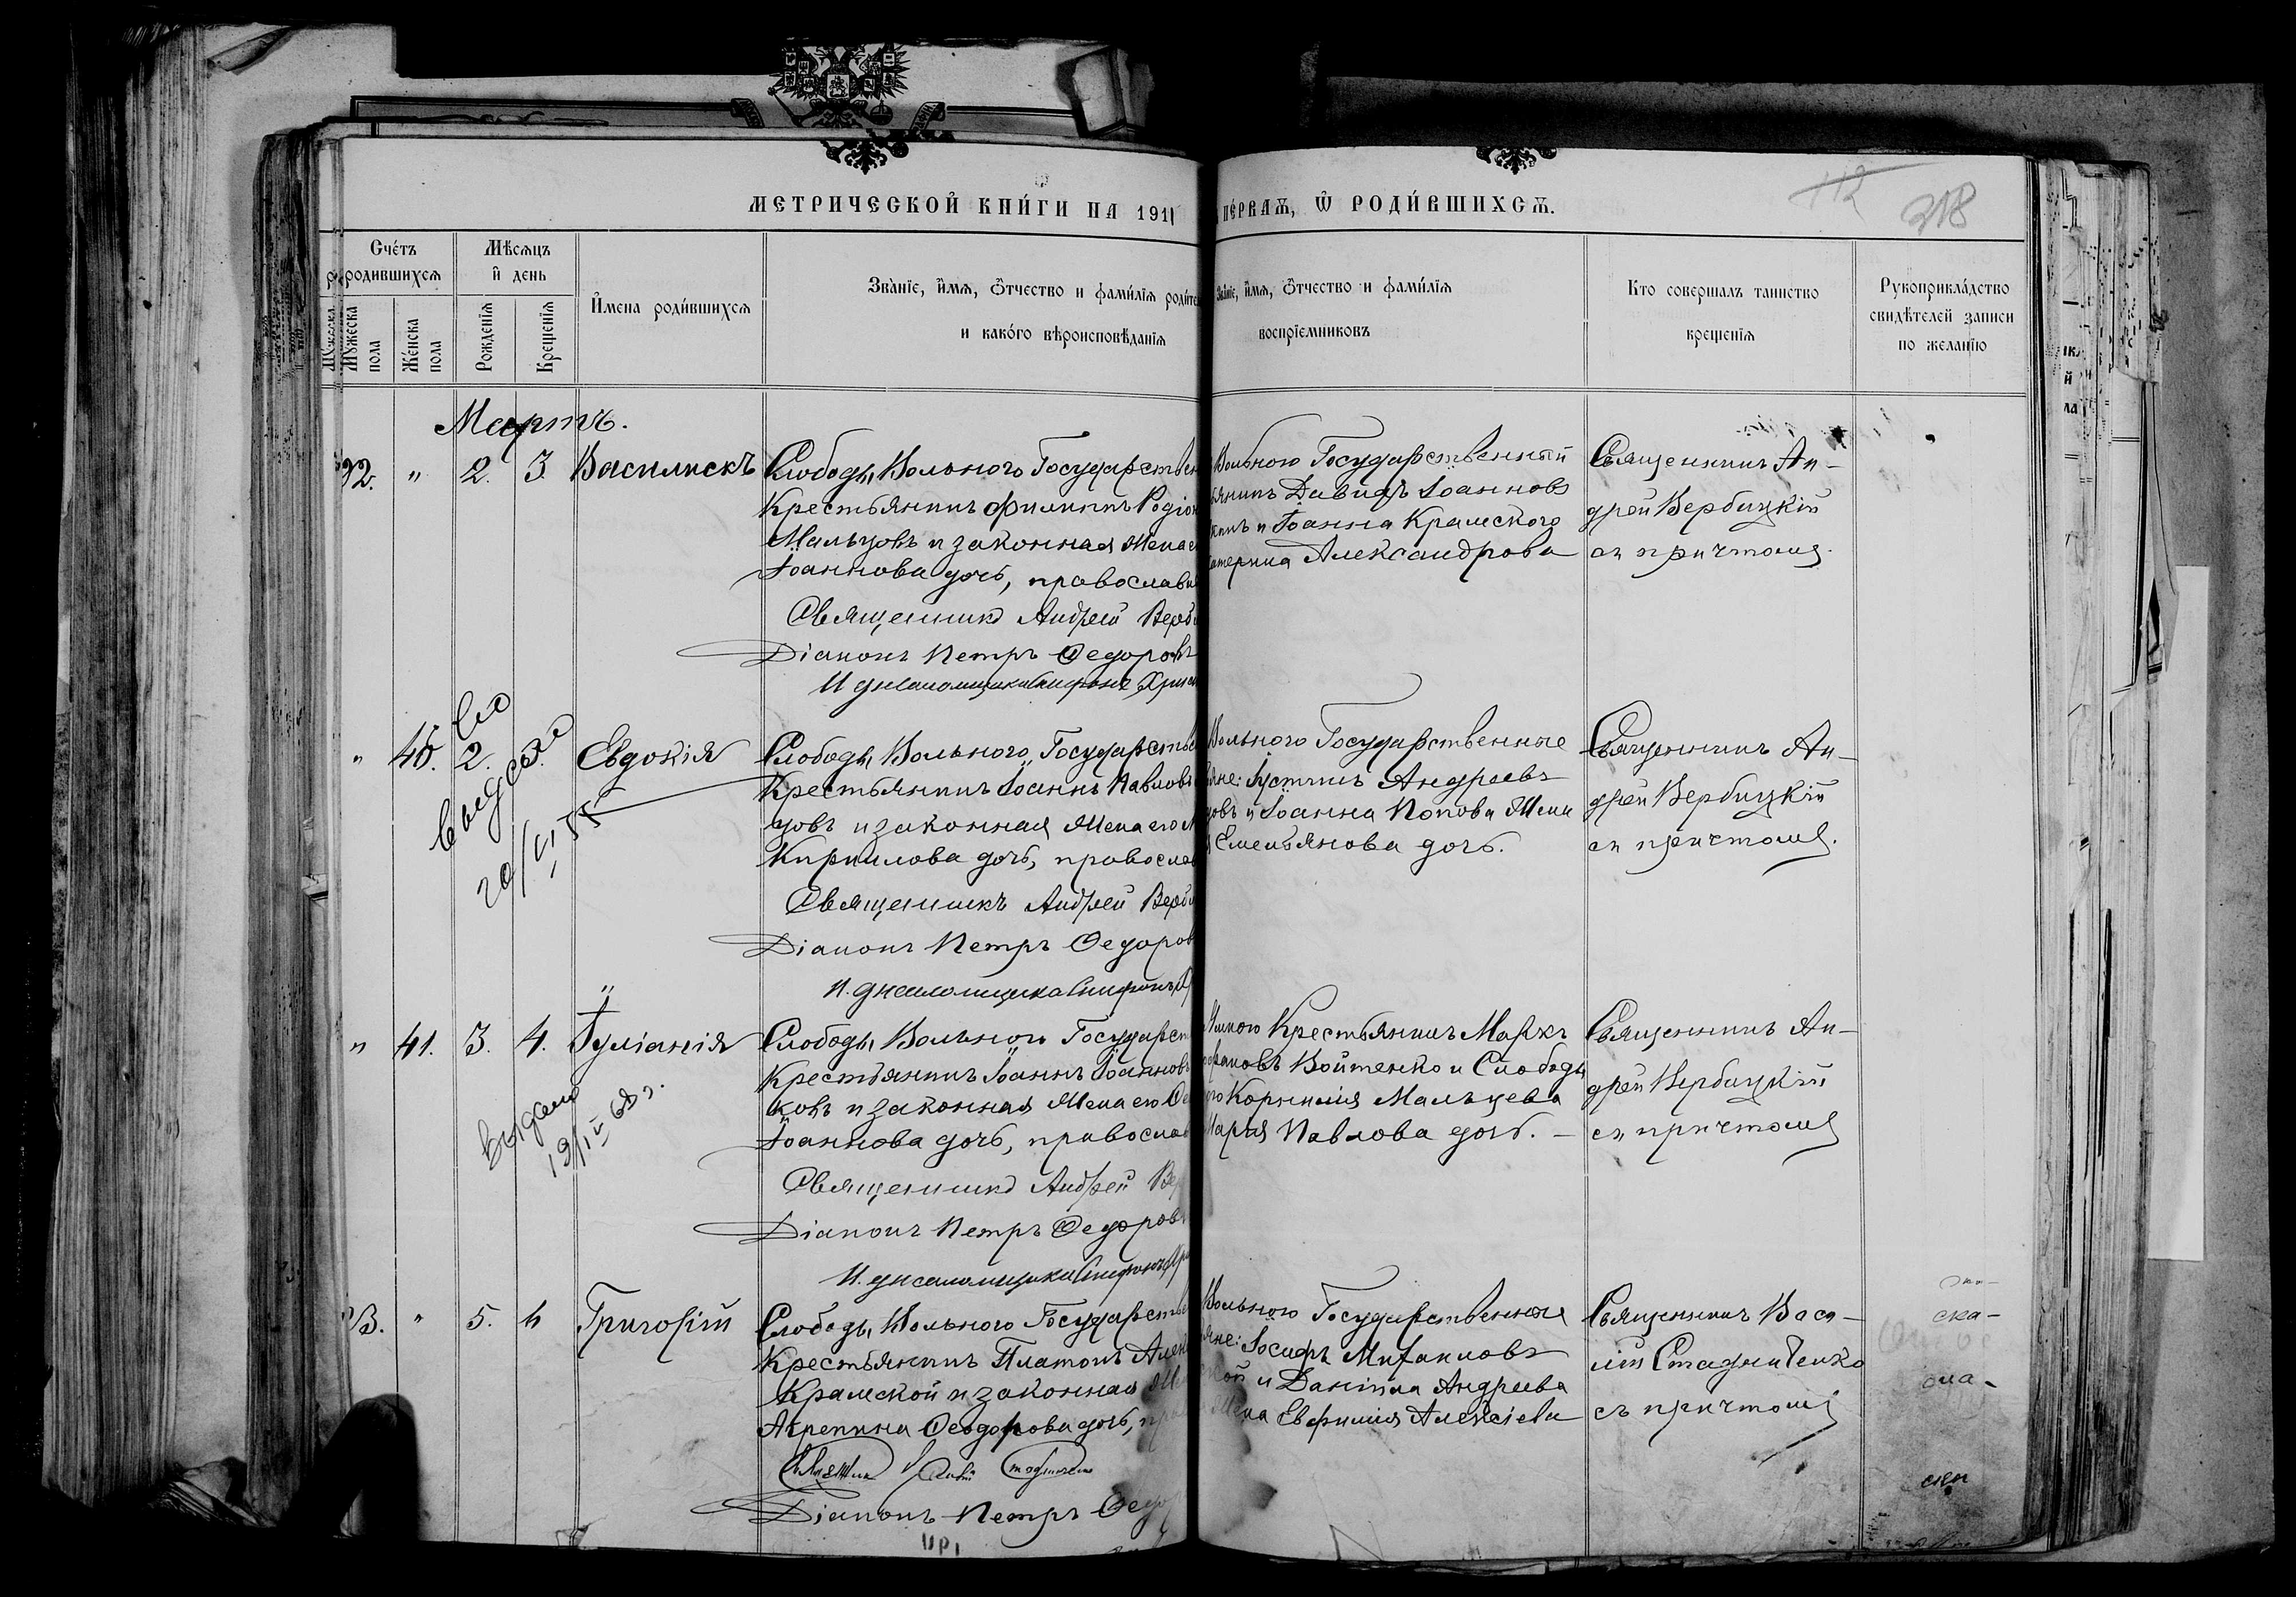 МЕТРИЧЕСКОЙ КНИ́ГИ НА 1911
ПЕ́РВАѦ, Ѡ҆ РОДИ́ВШИХСѦ.
112
318
Сче́тъ
родившихсѧ
Мужеска пола
Же́нска пола
Мѣсѧцъ
и҆ день
Рожденїѧ
Крещенїѧ
И҆мена роди́вшихсѧ
Зва́нїе, и҆́мѧ, ѻ҆́тчество и фами́лїѧ роди́те
и како́гѡ вѣроисповѣ́данїѧ
Зва́нїе, и҆́мѧ, ѻ҆́тчество и фами́лїѧ
воспрїемниковъ
Кто совершалъ таинство
крещенїѧ
Рукоприкла́дство
свидѣтелей записи
по желанїю
Мартъ.
32. " 2. 3. Василискъ
Слободы Вольного Государствен
Крестьянинъ Филиппъ Родіон
Мальцовъ и законная жена е
Іоаннова дочь, православн
Священникъ Андрей Верби
Діаконъ Петръ Федоровъ
И. д. псаломщика
Вольного Государственный
ьянинъ Давидъ Іоанновъ
и Іоанна Крамского
атерина Александрова
Священникъ Ан-
дрей Вербицкій
съ причтомъ.
" 40. 2. 3. Евдокія
выдано
20/VI 55
Слободы Вольного Государстве
Крестьянинъ Іоаннъ Павловъ
цовъ и законная жена его
Кириллова дочь, православ
Священникъ Андрей Верби
Діаконъ Петръ Федоров
И. д. псаломщика
Вольного Государственные
яне: Іустинъ Андреевъ
цовъ и Іоанна Попова жена
Емельянова дочь.
Священникъ Ан-
дрей Вербицкій
съ причтомъ.
" 41. 3. 4. Іуліанія
выдано
19/IV 68 г.
Слободы Вольного Государст
Крестьянинъ Іоаннъ Іоанновъ
ковъ и законная жена его
Іоаннова дочь, православ
Священникъ Андрей Вер
Діаконъ Петръ Федоров
И. д. псаломщика
Крестьянинъ Маркъ
Войтенко и Слободы
Корнилія Мальцева
Марія Павлова дочь. —
Священникъ Ан-
дрей Вербицкій
съ причтомъ
33. " 5. 6 Григорій
Слободы Вольного Государстве
Крестьянинъ Платонъ Алек
Крамской и законная
Агрепина Феодорова дочь, пра
Діаконъ Петръ Федо
Вольного Государственные
яне: Іосифъ Михаиловъ
и Даніила Андреева
жена Евфимія Алексіева
Священникъ Васи-
лій Стадниченко
съ причтомъ
ска-